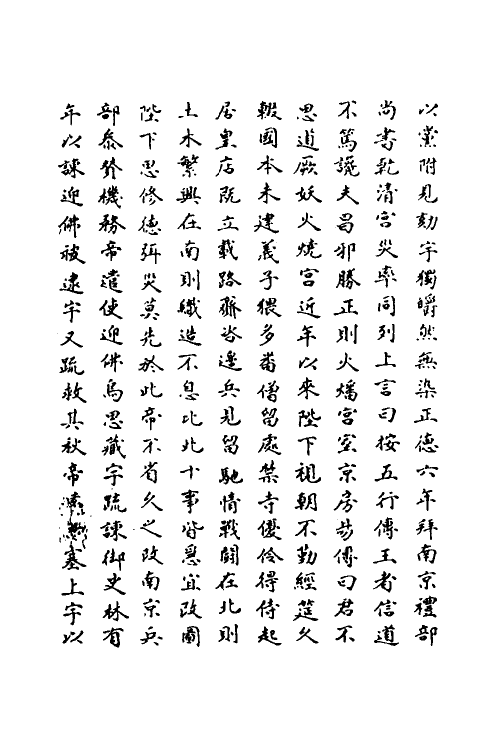 以黨附見劾宇獨皭然無染正德六年拜南京禮部
尚書乾清宮災率同列上言曰按五行傳王者信道
不篤讒夫昌邪勝正則火燔宮室京房昜傳曰君不
思道厥妖火燒宮近年以來陛下視朝不勤經筵久
輟國本未建義子猥多畨僧留處禁寺優伶得侍起
居皇店既立載路齎咨邊兵見留馳情戰鬬在北則
土木繁興在南則織造不息比此十事皆急宜改圖
陛下思修德弭災莫先於此帝不省久之改南京兵
部叅贊機務帝遣使迎佛烏思藏宇疏諫御史林有
年以諫迎佛被逮宇又疏救其秋帝塞上宇以